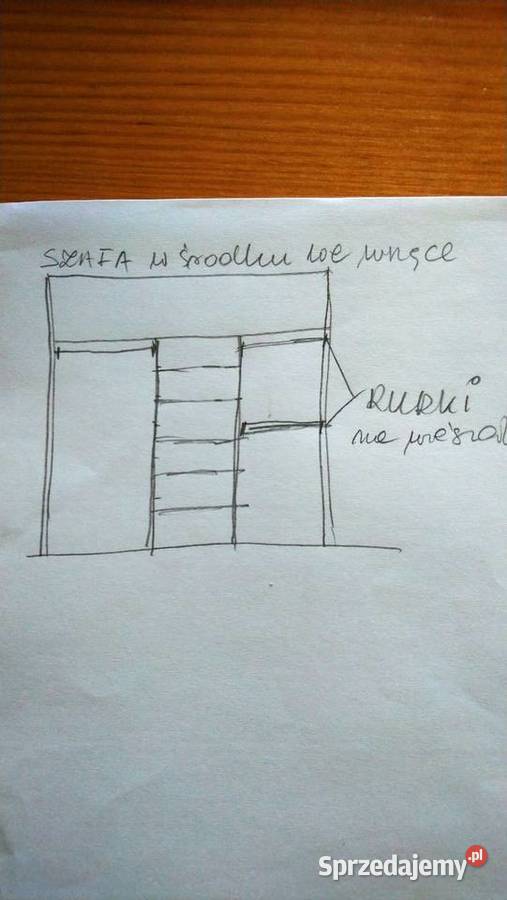 SZAFA w środku we wnęce
RURKI
na wiesza
Sprzedajemy.pl